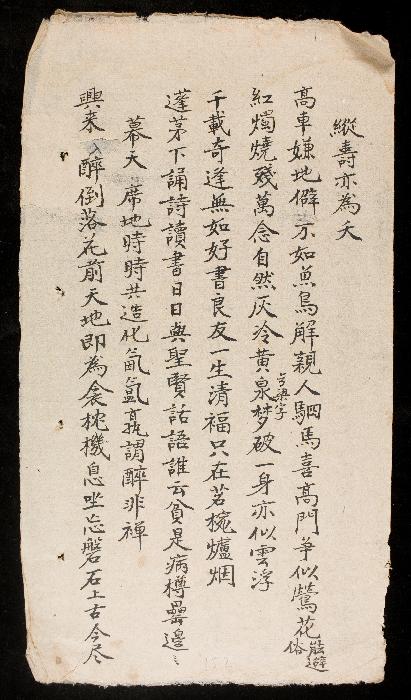 縱壽亦為夭
高車嫌地僻不如魚鳥解親人駟馬喜高門爭似鶯花能避俗
紅燭燒殘萬念自然灰冷黄泉梦破一身亦似雲浮
千載奇逢無如好書良友一生清福只在茗椀爐烟
蓬茅下誦詩讀書日日與聖賢話語誰云貧是病樽罍邊
幕天席地時時共造化氤氳孰謂醉非禪
興來醉倒落花前天地即為衾枕機息坐忘磐石上古今尽